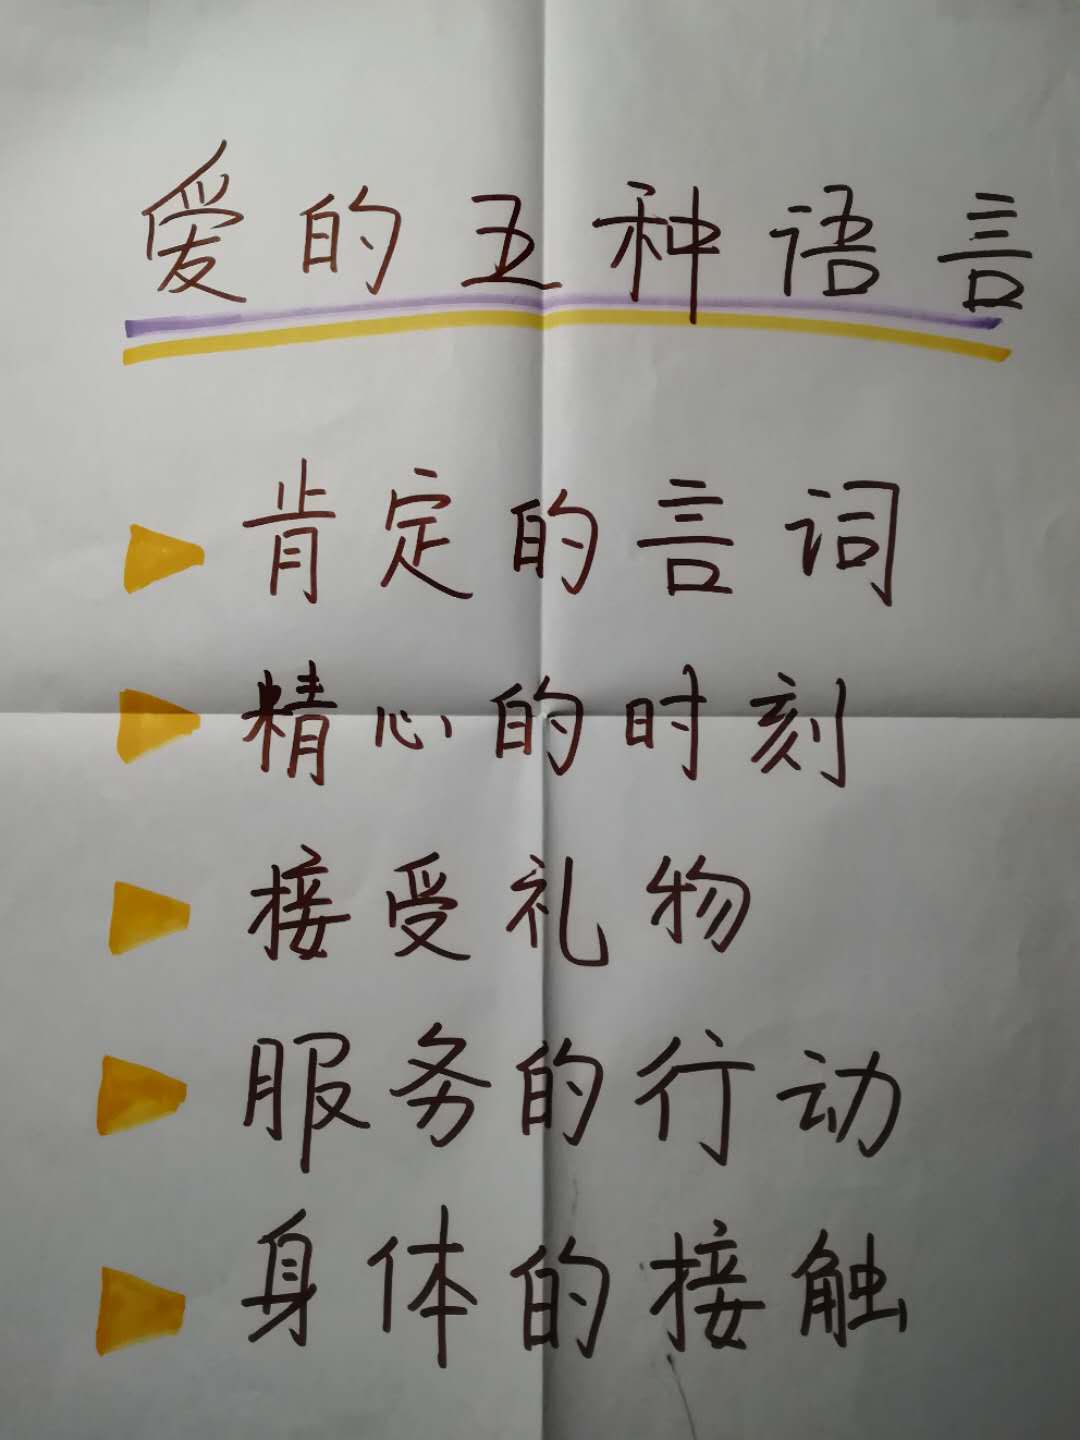 爱的五种语言
肯定的言词
精心的时刻
接受礼物
服务的行动
身体的接触